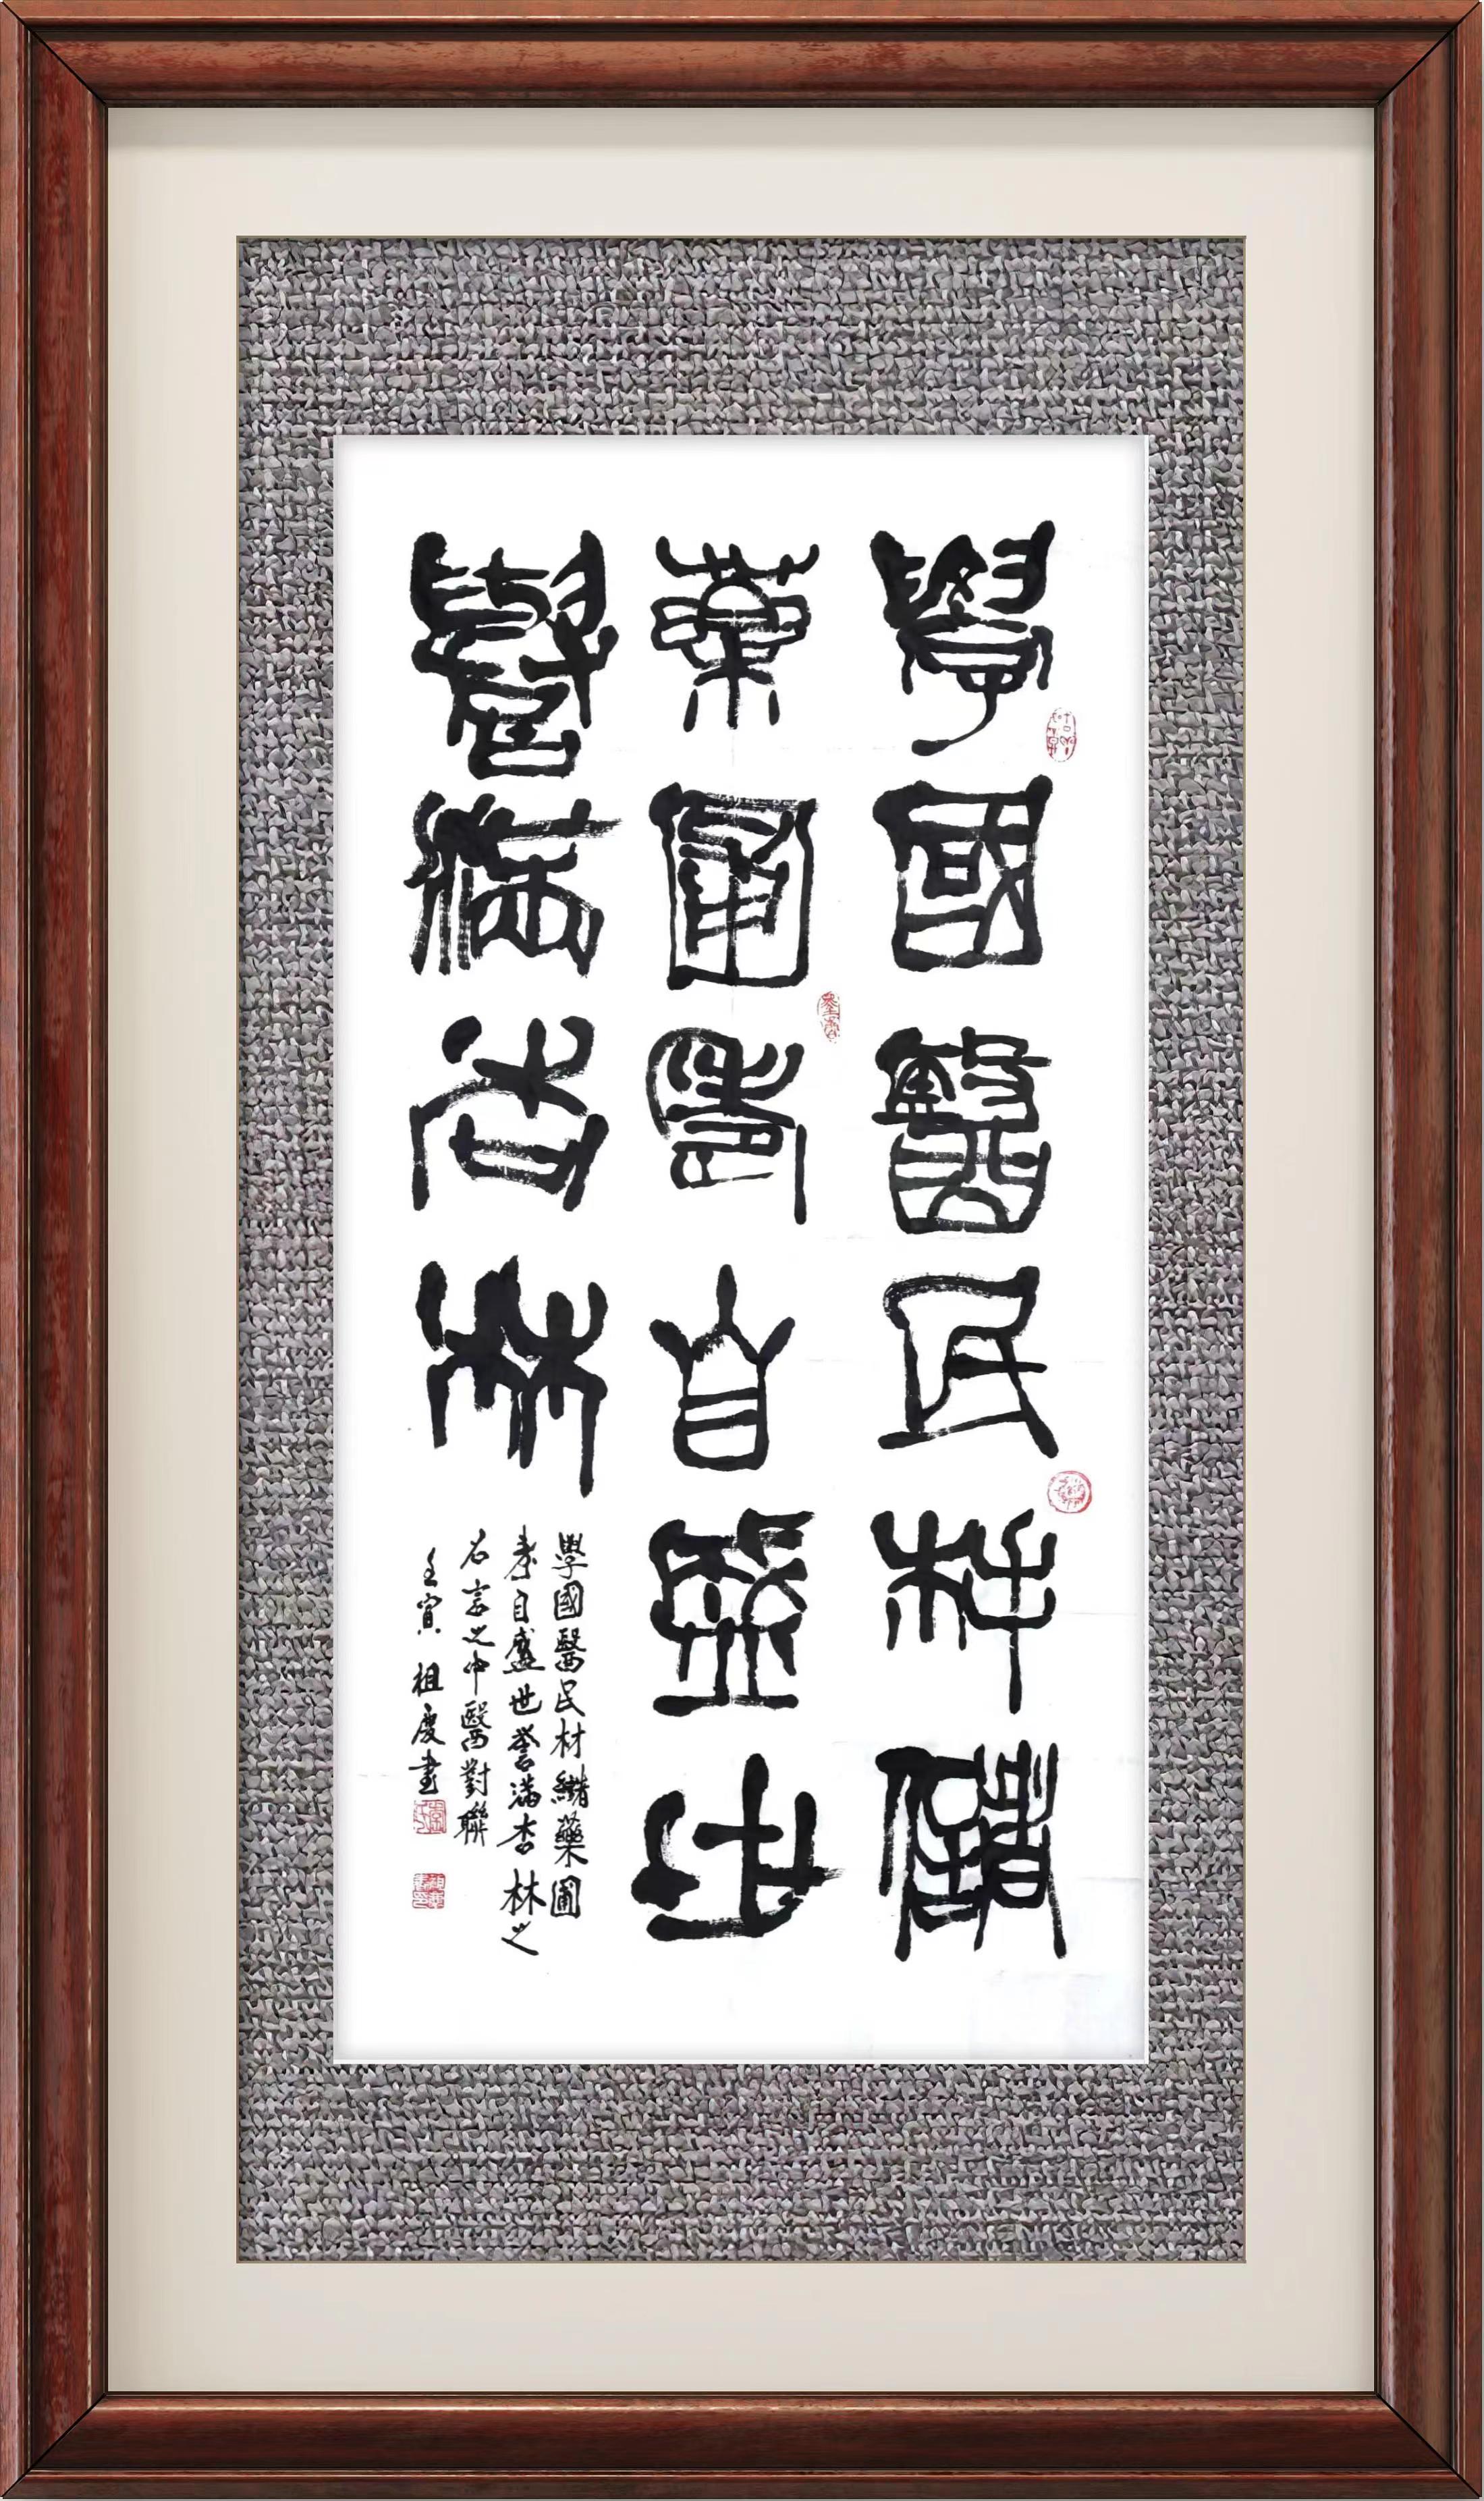 學國醫民材儲
藥圃壽自盛世
譽滿杏林
學國醫民材儲藥圃
壽自盛世譽滿杏林之
名家之中醫對聯
壬寅 祖慶書